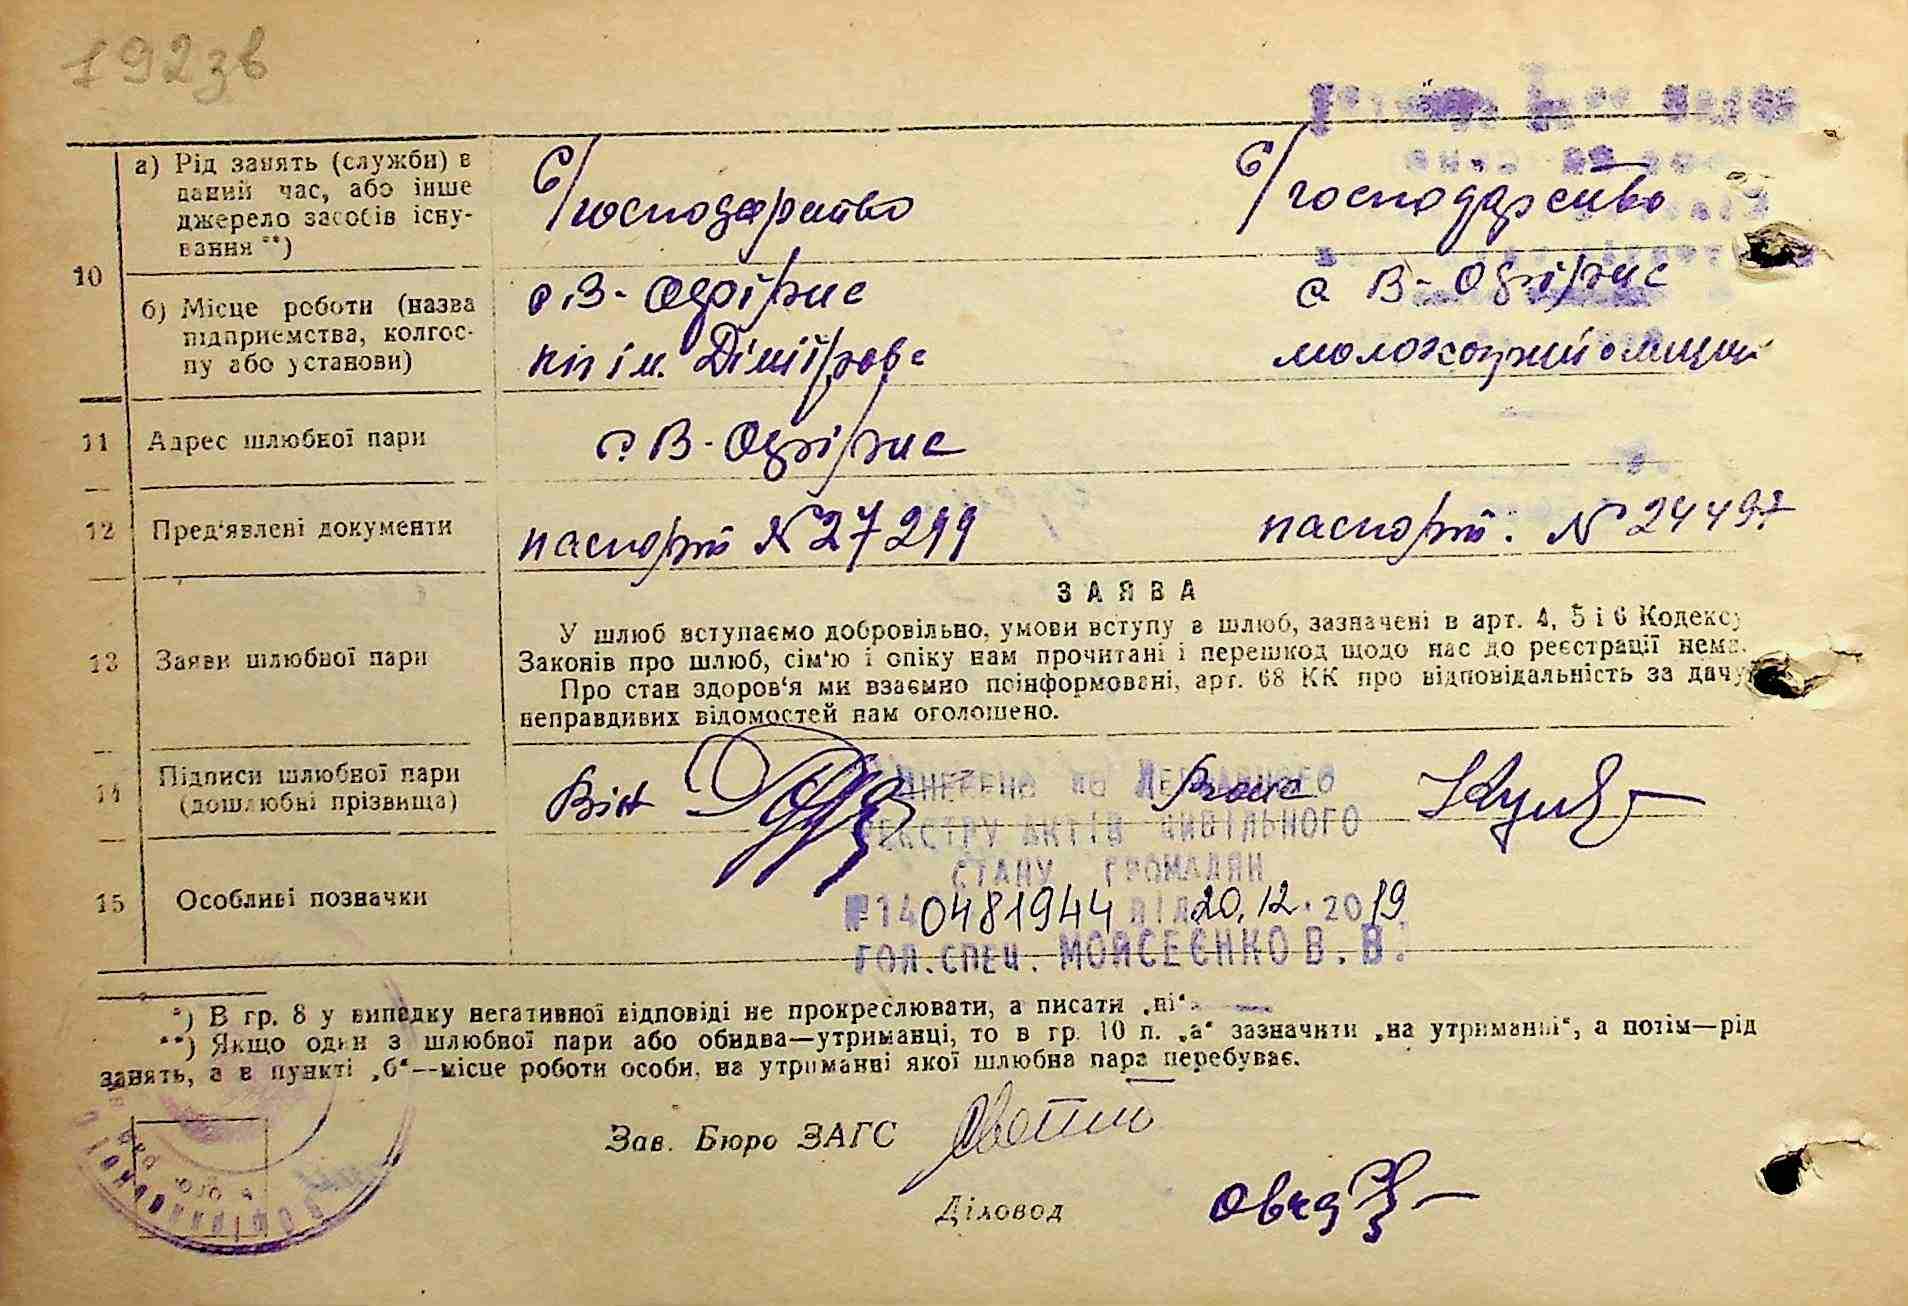 192зв
10
а) Рід занять (служби) в
даний час, або інше
джерело засобів існу-
вання **)
С/господарство
С/господарство
б) Місце роботи (назва
підприємства, колгос-
пу або установи)
с. В-Одрінка
с В-Одрінка
кп ім. Дімітрова
11
Адрес шлюбної пари
с. В-Одрінка
12
Пред'явлені документи
паспорт № 27299
паспорт. № 24497
13
Заяви шлюбної пари
ЗАЯВА
У шлюб вступаємо добровільно, умови вступу в шлюб, зазначені в арт. 4, 5 і 6 Кодексу
Законів про шлюб, сім'ю і опіку нам прочитані і перешкод щодо нас до реєстрації нема.
Про стан здоров'я ми взаємно поінформовані, арт. 68 КК про відповідальність за дачу
неправдивих відомостей нам оголошено.
14
Підписи шлюбної пари
(дошлюбні прізвища)
Він
Вона
ВНЕСЕНО ДО ДЕРЖАВНОГО
РЕЄСТРУ АКТІВ ЦИВІЛЬНОГО
СТАНУ ГРОМАДЯН
15
Особливі позначки
№140481944 від 20.12.2019
ГОЛ.СПЕЦ. МОЙСЕЄНКО В.В.
*) В гр. 8 у випадку негативної відповіді не прокреслювати, а писати „ні“.
**) Якщо один з шлюбної пари або обидва—утриманці, то в гр. 10 п. „а“ зазначити „на утриманні“, а потім—рід
занять, а в пункті „б“—місце роботи особи, на утриманні якої шлюбна пара перебуває.
Зав. Бюро ЗАГС
Діловод